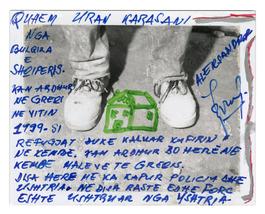 QUHEM URAN KARASANI
NGA
BULQIRA
E
SHQIPERIS.
KAM ARDHUR
NE GREQI
NE VITIN
1999.
REFUGJAT DUKE KALUAR KUFIRIN
NE KEMBE, KAM ARDHUR 80 HERË NE
KEMBE MALEVE TE GREQIS.
DISA HERE NE KA KAPUR POLICIA DHE
USHTRIA. NE DISA RASTE EDHE FORC
ESHTE USHTRUAR NGA USHTRIA.
ALEKSANDROS